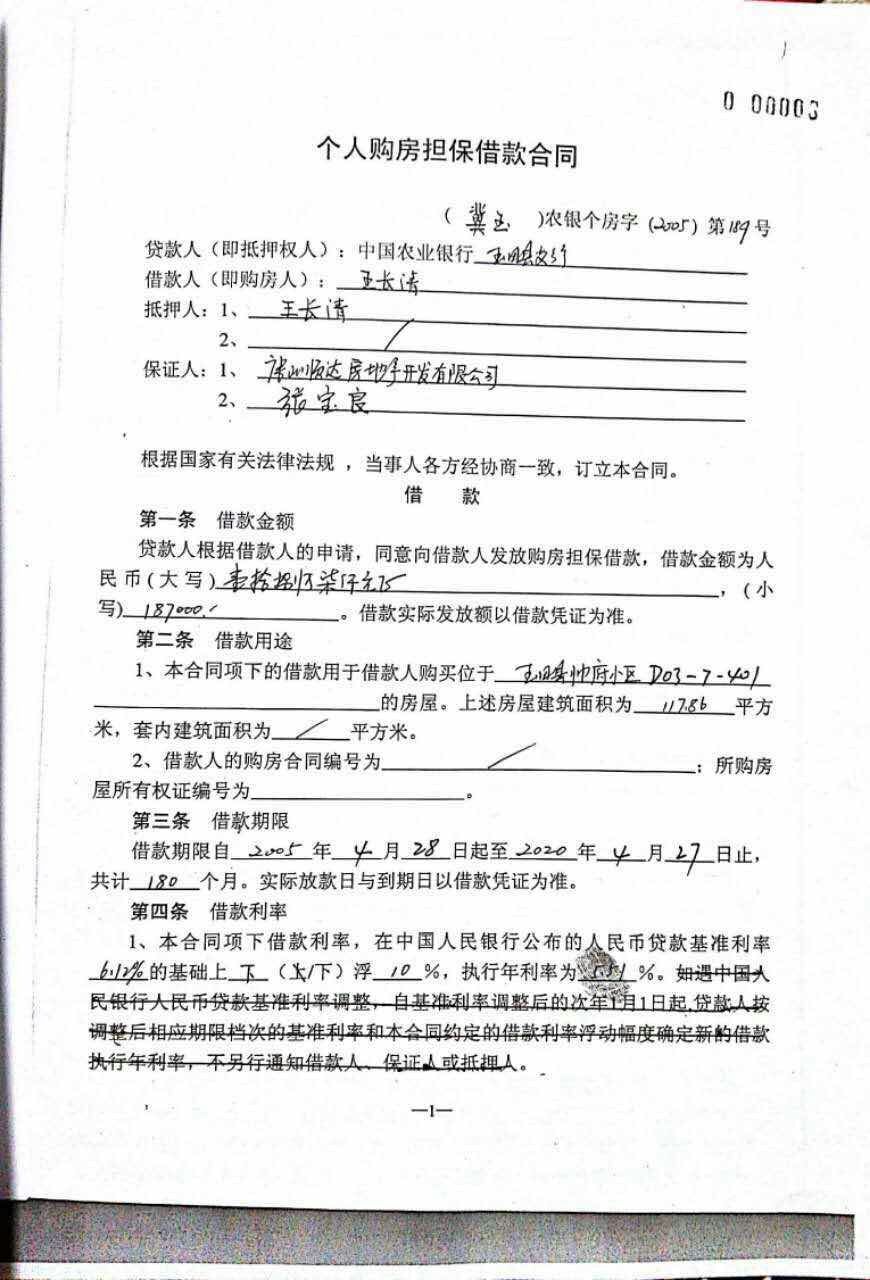 0 00003
个人购房担保借款合同
( 冀玉 )农银个房字 (2005) 第189号
贷款人（即抵押权人）：中国农业银行 玉田县支行
借款人（即购房人）： 王长清
抵押人：1、 王长清
2、 /
保证人：1、 唐山恒达房地产开发有限公司
2、 张宝良
根据国家有关法律法规 ，当事人各方经协商一致，订立本合同。
借 款
第一条 借款金额
贷款人根据借款人的申请，同意向借款人发放购房担保借款，借款金额为人
民币(大写) 壹拾捌万柒仟元正 ，(小
写) 187000.- 。借款实际发放额以借款凭证为准。
第二条 借款用途
1、本合同项下的借款用于借款人购买位于 玉田县帅府小区 D03-7-401
的房屋。上述房屋建筑面积为 117.86 平方
米，套内建筑面积为 / 平方米。
2、借款人的购房合同编号为 / ；所购房
屋所有权证编号为 。
第三条 借款期限
借款期限自 2005 年 4 月 28 日起至 2020 年 4 月 27 日止，
共计 180 个月。实际放款日与到期日以借款凭证为准。
第四条 借款利率
1、本合同项下借款利率，在中国人民银行公布的人民币贷款基准利率
6.12% 的基础上 下 （上/下）浮 10 %，执行年利率为 5.51 %。如遇中国人
民银行人民币贷款基准利率调整，自基准利率调整后的次年1月1日起,贷款人按
调整后相应期限档次的基准利率和本合同约定的借款利率浮动幅度确定新的借款
执行年利率，不另行通知借款人、保证人或抵押人。
—1—